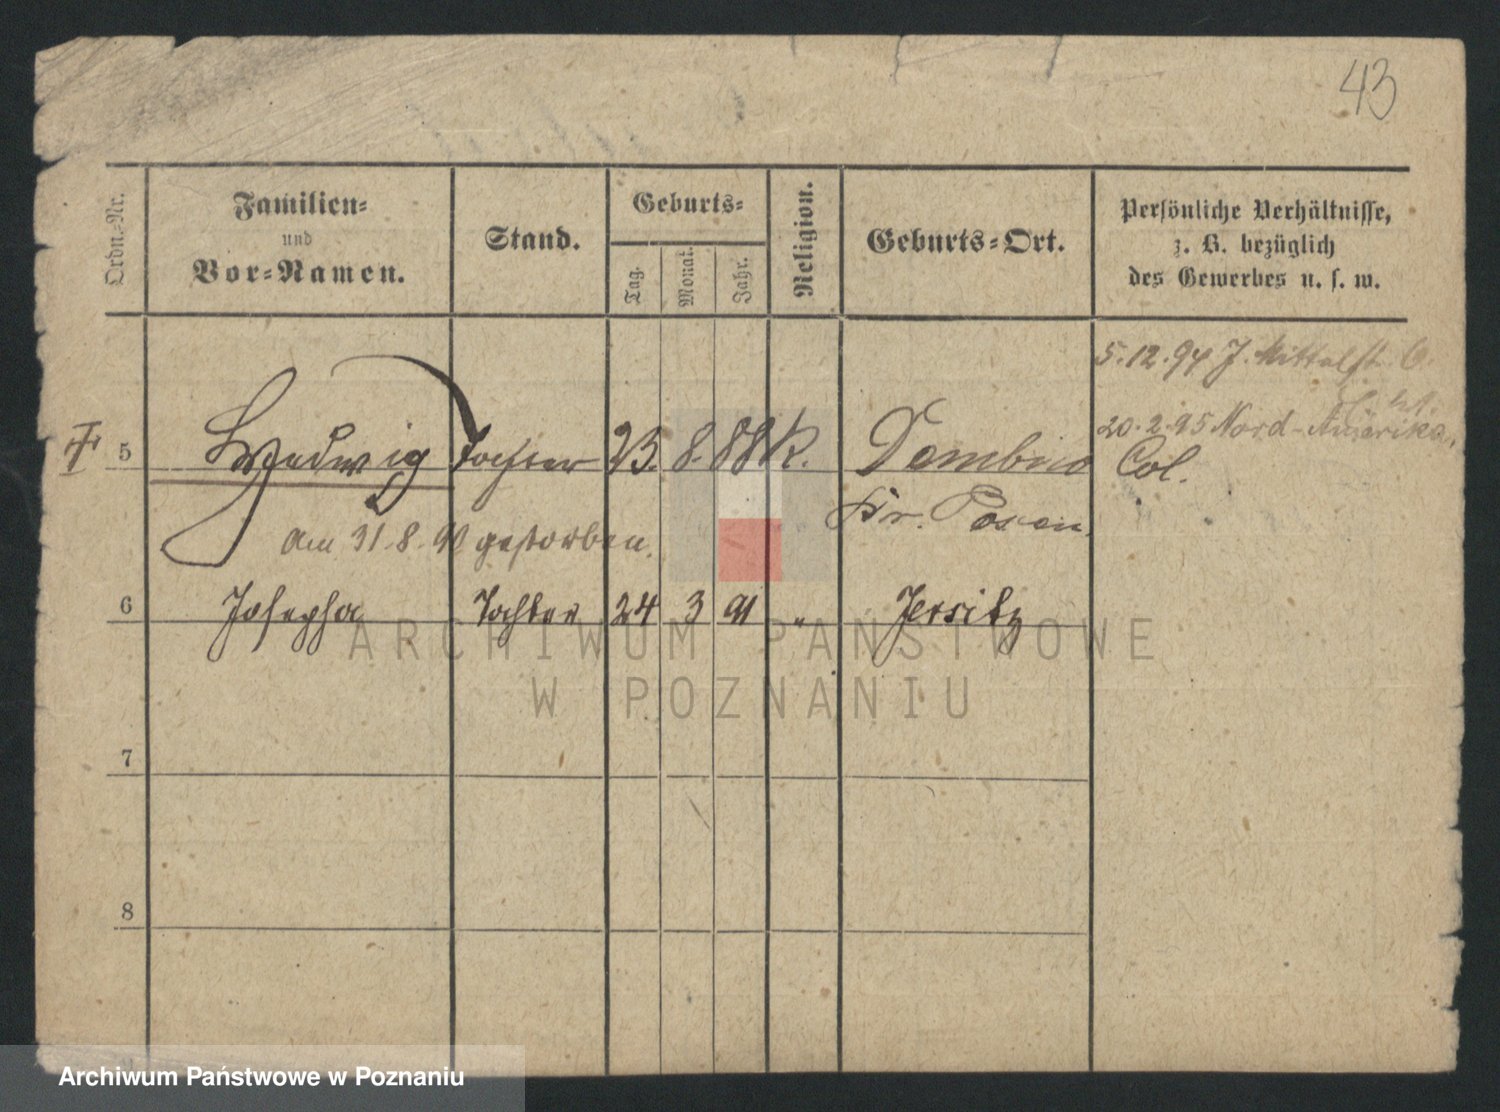 43
Ordn.-Nr.
Familien-
und
Vor-Namen.
Stand.
Geburts-
Tag.
Monat.
Jahr.
Religion.
Geburts-Ort.
Persönliche Verhältnisse,
z. B. bezüglich
des Gewerbes u. s. w.
5.12.94 J. Mittelst. 6.
20.2.95 Nord-Amerika,
Col.
5 Hedwig Tochter 23. 8. 88 K. Dembino
Kr. Posen.
Am 31.8.90 gestorben.
6 Josepha Tochter 24 3 91 " Jersitz
ARCHIWUM PAŃSTWOWE
W POZNANIU
7
8
Archiwum Państwowe w Poznaniu